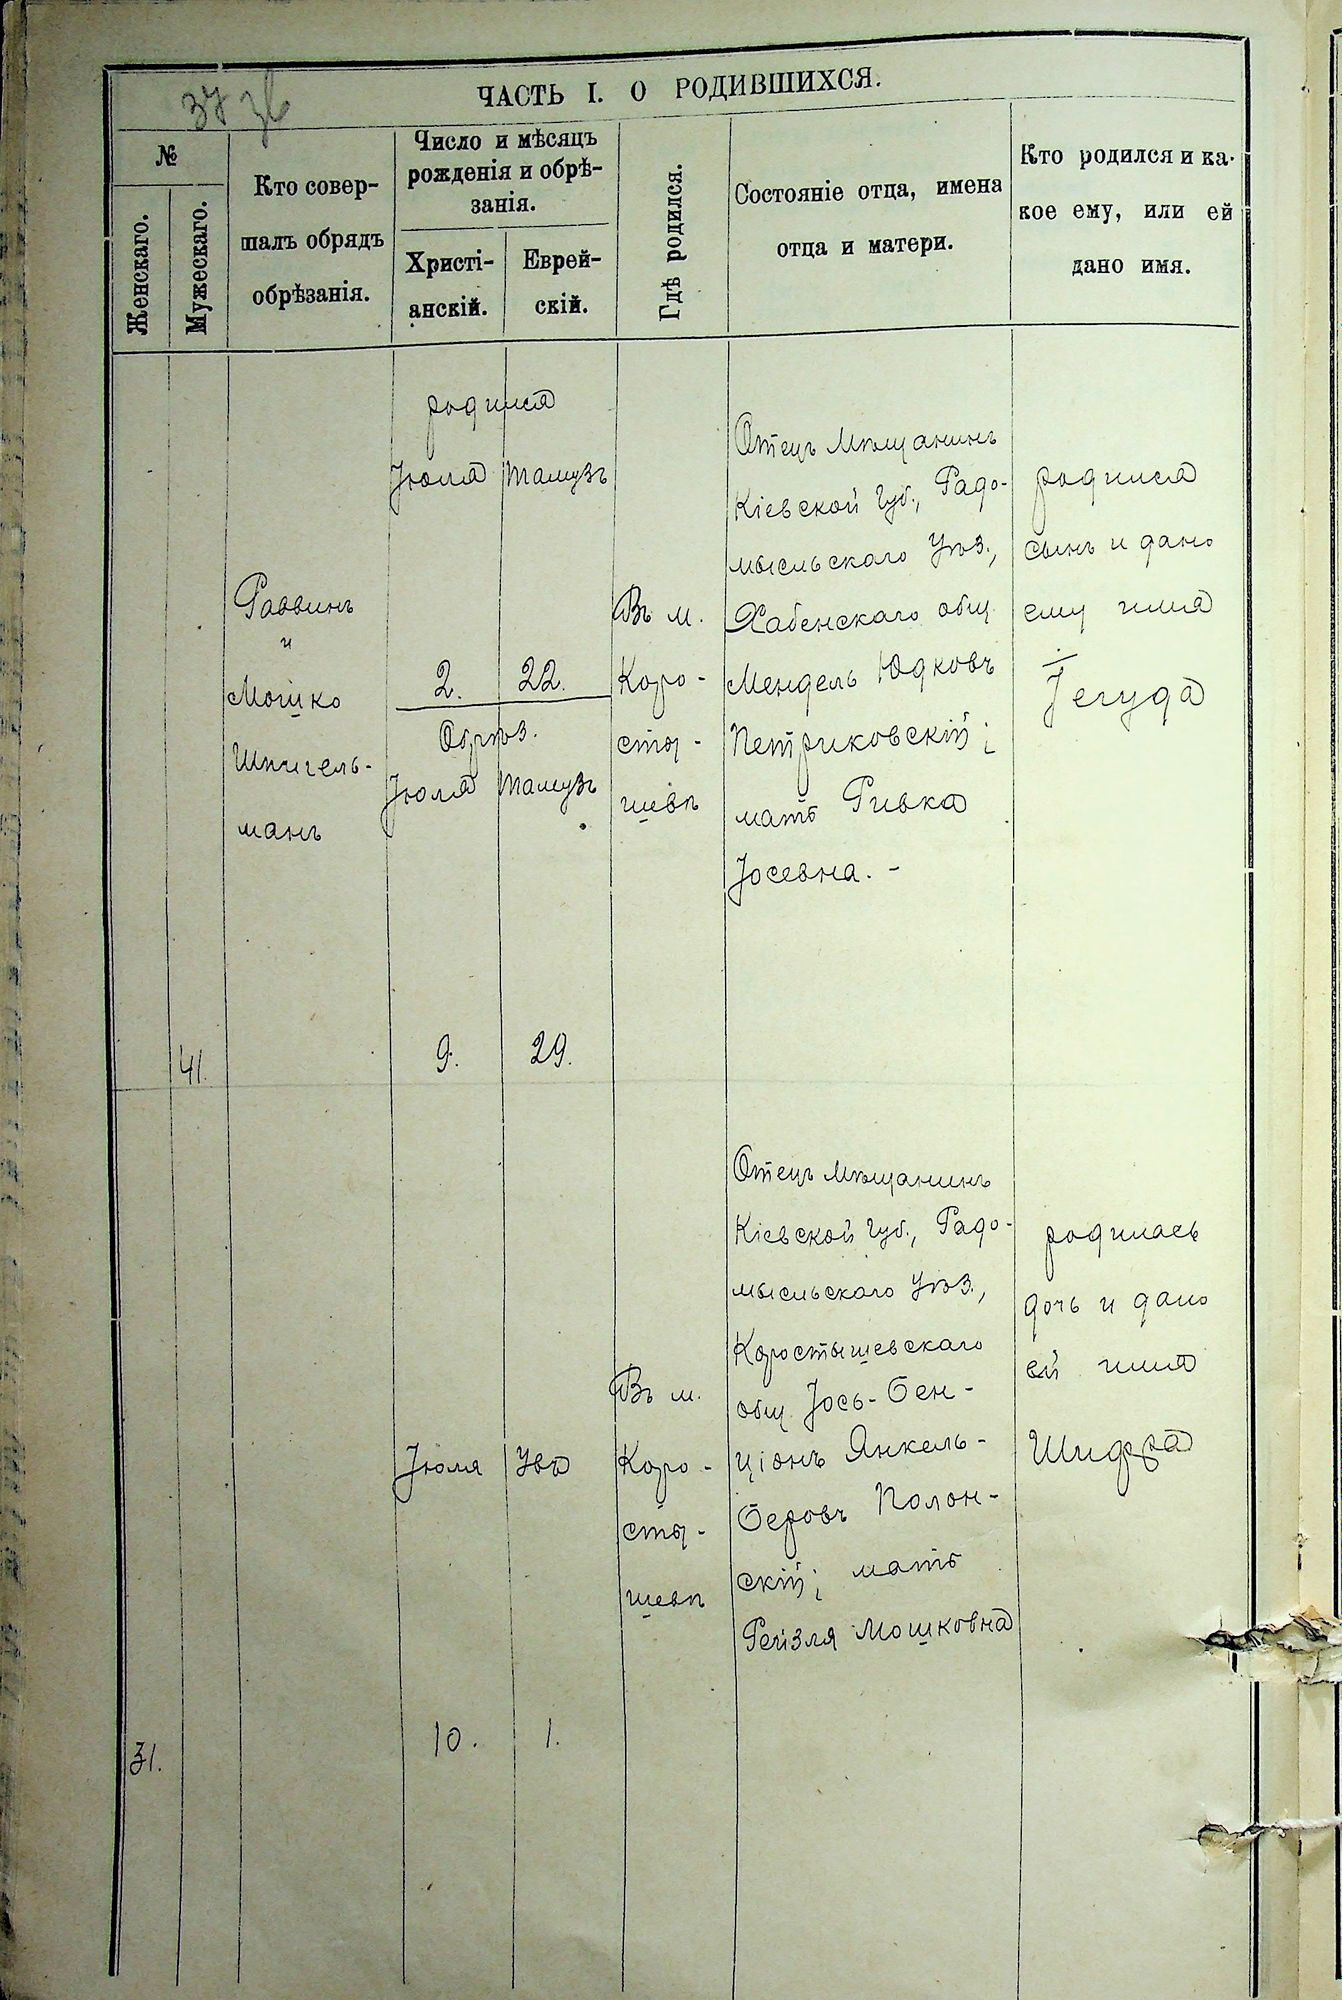 37 зв
ЧАСТЬ I. О РОДИВШИХСЯ.
№
Женскаго.
Мужескаго.
Кто совер-
шалъ обрядъ
обрѣзанія.
Число и мѣсяцъ
рожденія и обрѣ-
занія.
Христі-
анскій.
Еврей-
скій.
Гдѣ родился.
Состояніе отца, имена
отца и матери.
Кто родился и ка-
кое ему, или ей
дано имя.
41.
Раввинъ
и
Мошко
Шпигель-
манъ
родился
Іюля Тамузъ
2. 22.
Обрѣз.
Іюля Тамузъ
9. 29.
Въ м.
Коро-
сты-
шевѣ
Отецъ Мѣщанинъ
Кіевской Губ., Радо-
мысльскаго Уѣз.,
Хабенскаго общ
Мендель Юдковъ
Петриковскій;
мать Ривка
Іосевна. -
родился
сынъ и дано
ему имя
Іегуда
31.
Іюля Увъ
10. 1.
Въ м.
Коро-
сты-
шевѣ
Отецъ Мѣщанинъ
Кіевской Губ., Радо-
мысльскаго Уѣз.,
Коростышевскаго
общ. Іось-Бен-
ціонъ Янкель-
Беровъ Полон-
скій; мать
Рейзля Мошковна
родилась
дочь и дано
ей имя
Шифра